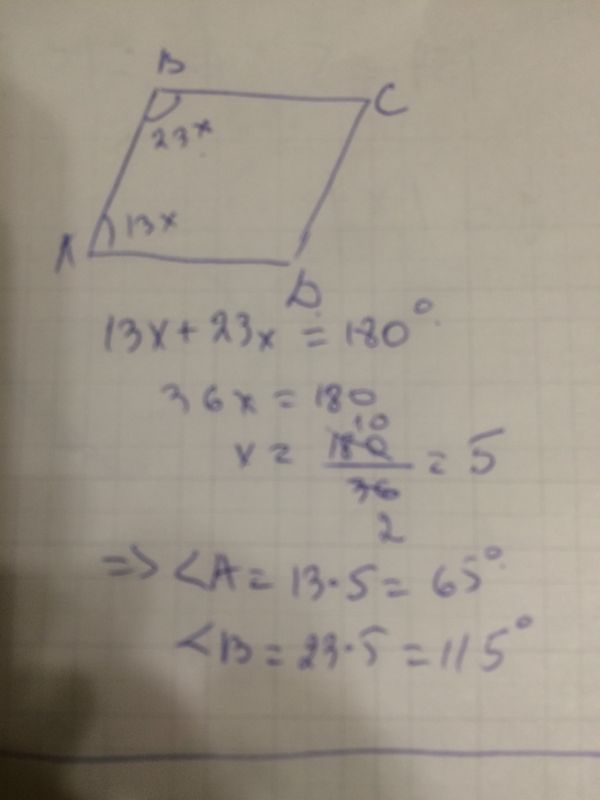 B
C
23x
13x
A
D
13x + 23x = 180°
36x = 180
10
x = 180/36 = 5
2
=> ∠A = 13·5 = 65°
∠B = 23·5 = 115°